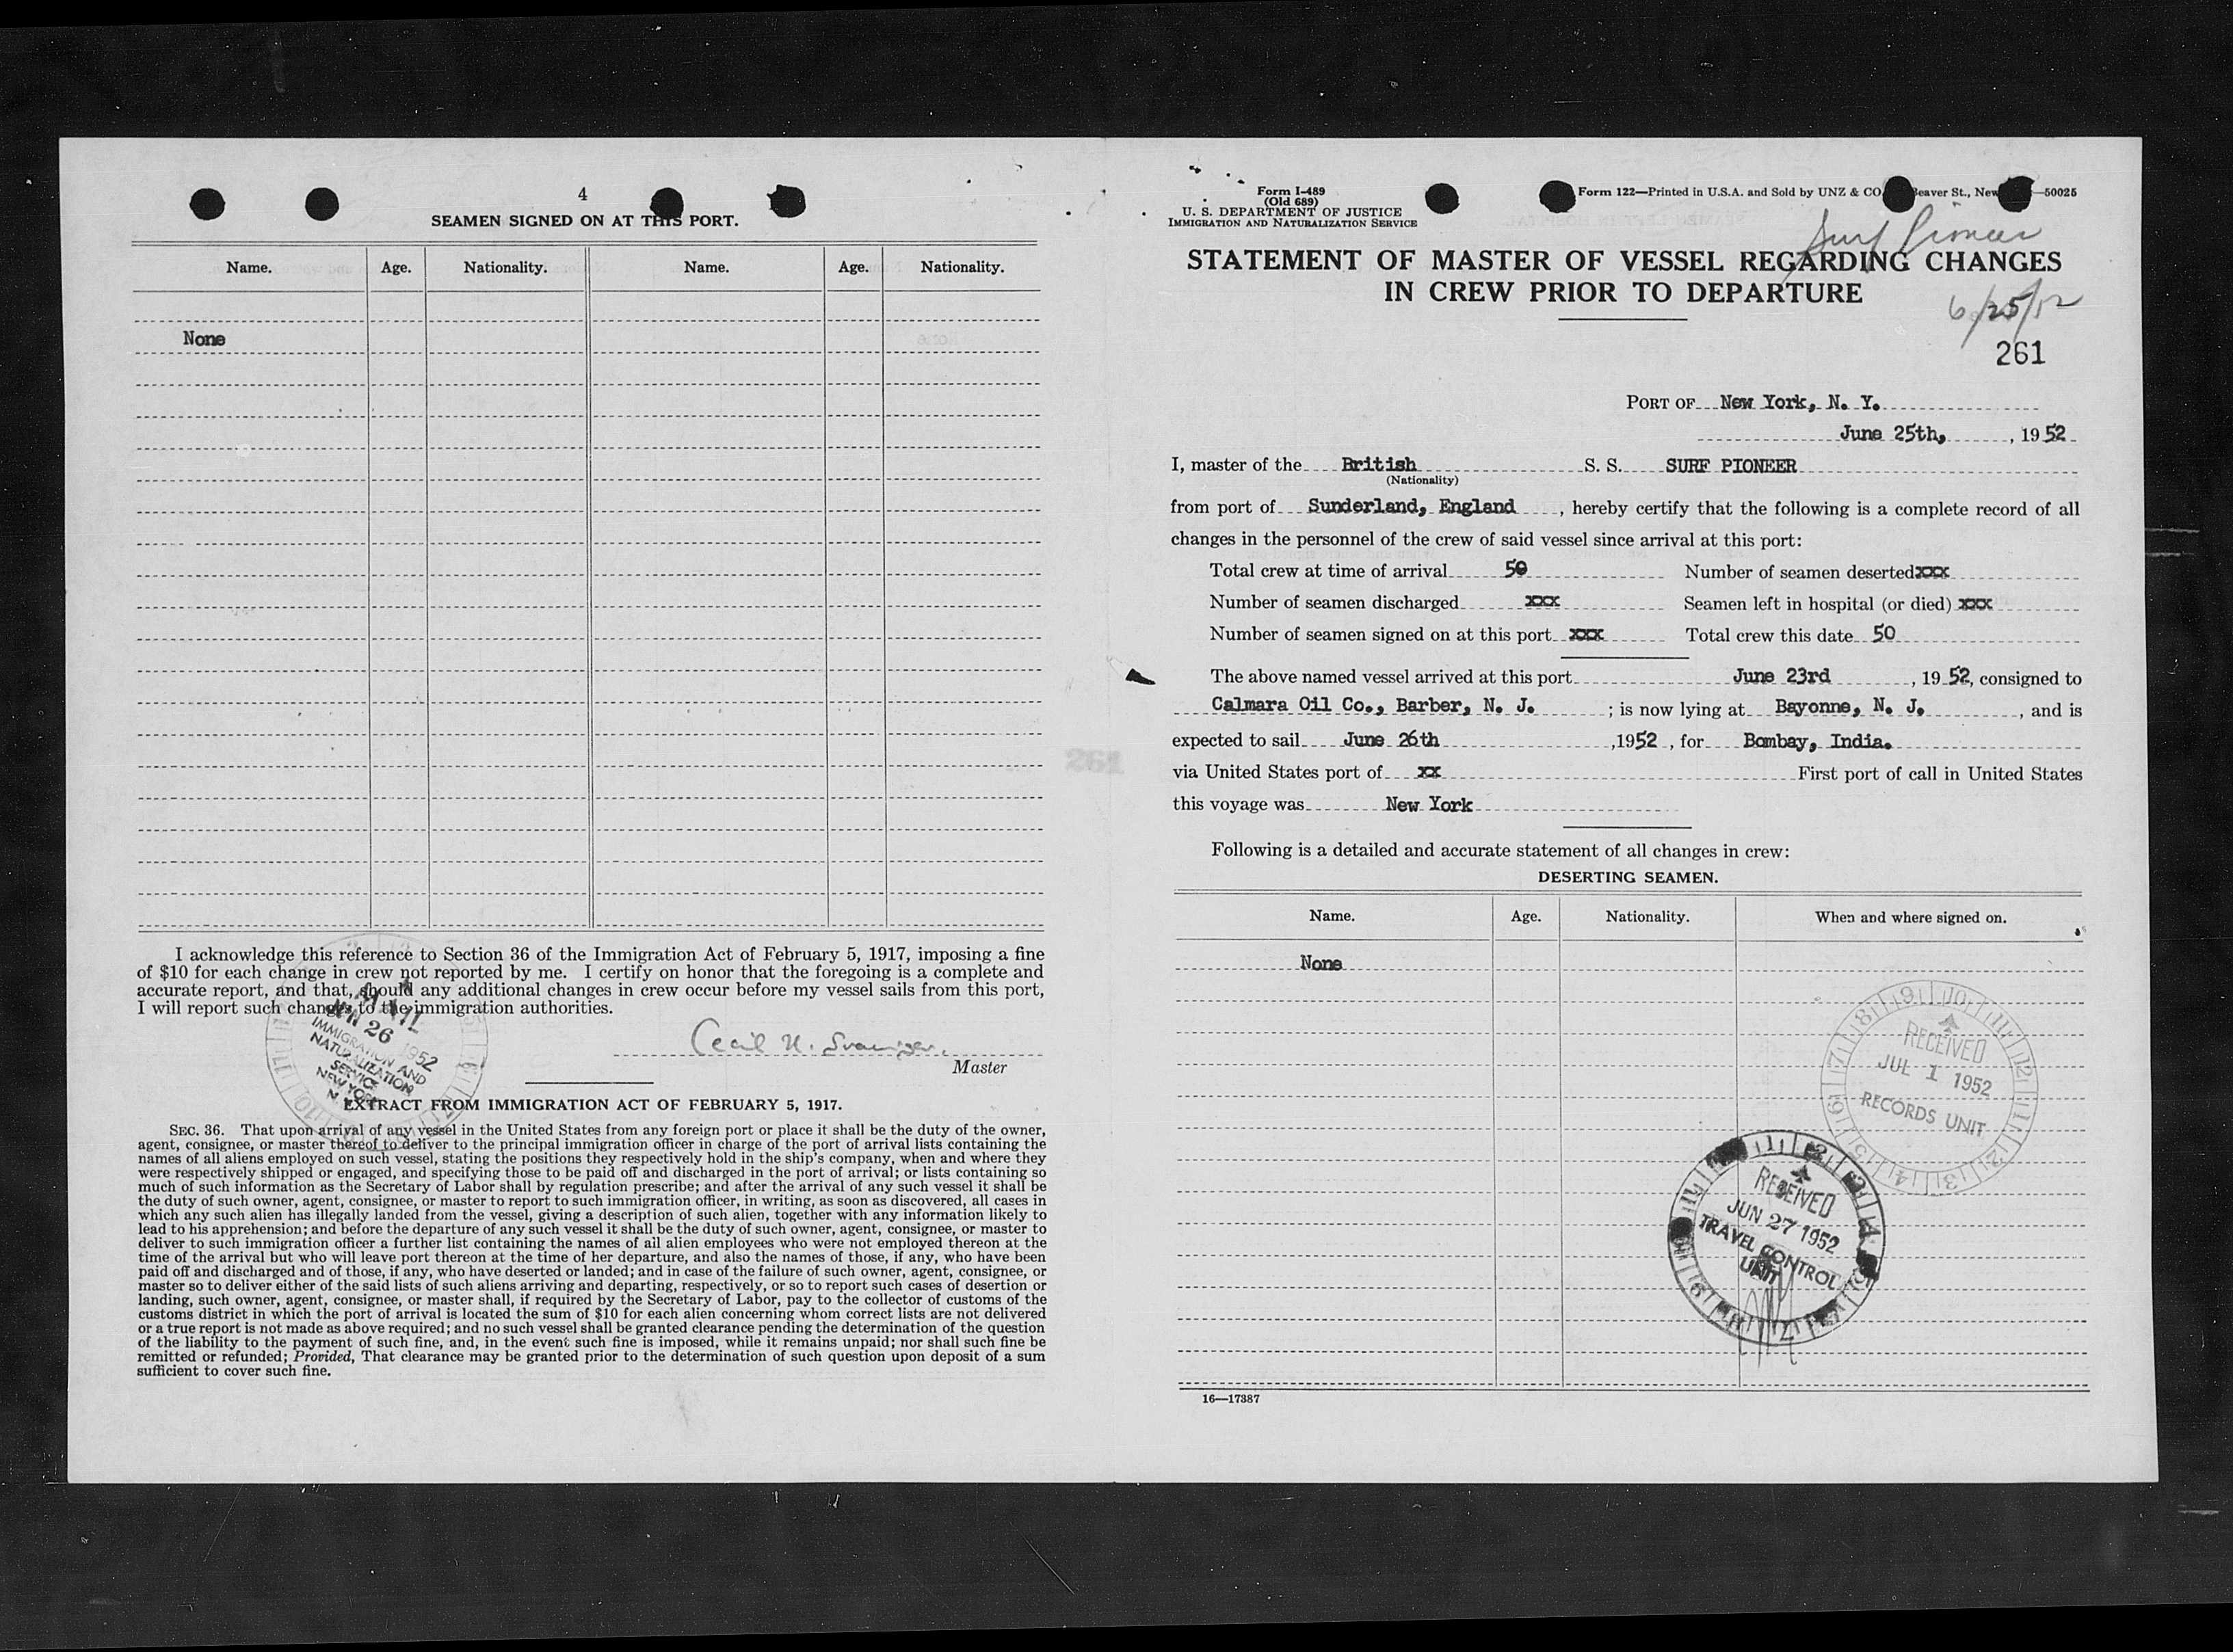 4
SEAMEN SIGNED ON AT THIS PORT.
Name. Age. Nationality. Name. Age. Nationality.
None
I acknowledge this reference to Section 36 of the Immigration Act of February 5, 1917, imposing a fine
of $10 for each change in crew not reported by me. I certify on honor that the foregoing is a complete and
accurate report, and that, should any additional changes in crew occur before my vessel sails from this port,
I will report such changes to the immigration authorities.
MAIL
JUN 26 1952
IMMIGRATION AND
NATURALIZATION
SERVICE
NEW YORK
N. Y.
Cecil H.
Master
EXTRACT FROM IMMIGRATION ACT OF FEBRUARY 5, 1917.
SEC. 36. That upon arrival of any vessel in the United States from any foreign port or place it shall be the duty of the owner,
agent, consignee, or master thereof to deliver to the principal immigration officer in charge of the port of arrival lists containing the
names of all aliens employed on such vessel, stating the positions they respectively hold in the ship's company, when and where they
were respectively shipped or engaged, and specifying those to be paid off and discharged in the port of arrival; or lists containing so
much of such information as the Secretary of Labor shall by regulation prescribe; and after the arrival of any such vessel it shall be
the duty of such owner, agent, consignee, or master to report to such immigration officer, in writing, as soon as discovered, all cases in
which any such alien has illegally landed from the vessel, giving a description of such alien, together with any information likely to
lead to his apprehension; and before the departure of any such vessel it shall be the duty of such owner, agent, consignee, or master to
deliver to such immigration officer a further list containing the names of all alien employees who were not employed thereon at the
time of the arrival but who will leave port thereon at the time of her departure, and also the names of those, if any, who have been
paid off and discharged and of those, if any, who have deserted or landed; and in case of the failure of such owner, agent, consignee, or
master so to deliver either of the said lists of such aliens arriving and departing, respectively, or so to report such cases of desertion or
landing, such owner, agent, consignee, or master shall, if required by the Secretary of Labor, pay to the collector of customs of the
customs district in which the port of arrival is located the sum of $10 for each alien concerning whom correct lists are not delivered
or a true report is not made as above required; and no such vessel shall be granted clearance pending the determination of the question
of the liability to the payment of such fine, and, in the event such fine is imposed, while it remains unpaid; nor shall such fine be
remitted or refunded; Provided, That clearance may be granted prior to the determination of such question upon deposit of a sum
sufficient to cover such fine.
Form I-489
(Old 689)
U. S. DEPARTMENT OF JUSTICE
IMMIGRATION AND NATURALIZATION SERVICE
Form 122—Printed in U.S.A. and Sold by UNZ & CO. Beaver St., New —50025
Surf Pioneer
STATEMENT OF MASTER OF VESSEL REGARDING CHANGES
IN CREW PRIOR TO DEPARTURE
6/25/52
261
PORT OF New York, N. Y.
June 25th, , 19 52
I, master of the British S. S. SURF PIONEER
(Nationality)
from port of Sunderland, England , hereby certify that the following is a complete record of all
changes in the personnel of the crew of said vessel since arrival at this port:
Total crew at time of arrival 50 Number of seamen deserted xxx
Number of seamen discharged xxx Seamen left in hospital (or died) xxx
Number of seamen signed on at this port xxx Total crew this date 50
The above named vessel arrived at this port June 23rd , 19 52, consigned to
Calmara Oil Co., Barber, N. J. ; is now lying at Bayonne, N. J. , and is
expected to sail June 26th ,1952 , for Bombay, India.
via United States port of xx First port of call in United States
this voyage was New York
Following is a detailed and accurate statement of all changes in crew:
DESERTING SEAMEN.
Name. Age. Nationality. When and where signed on.
None
RECEIVED
JUL 1 1952
RECORDS UNIT
RECEIVED
JUN 27 1952
TRAVEL CONTROL
UNIT
16—17387